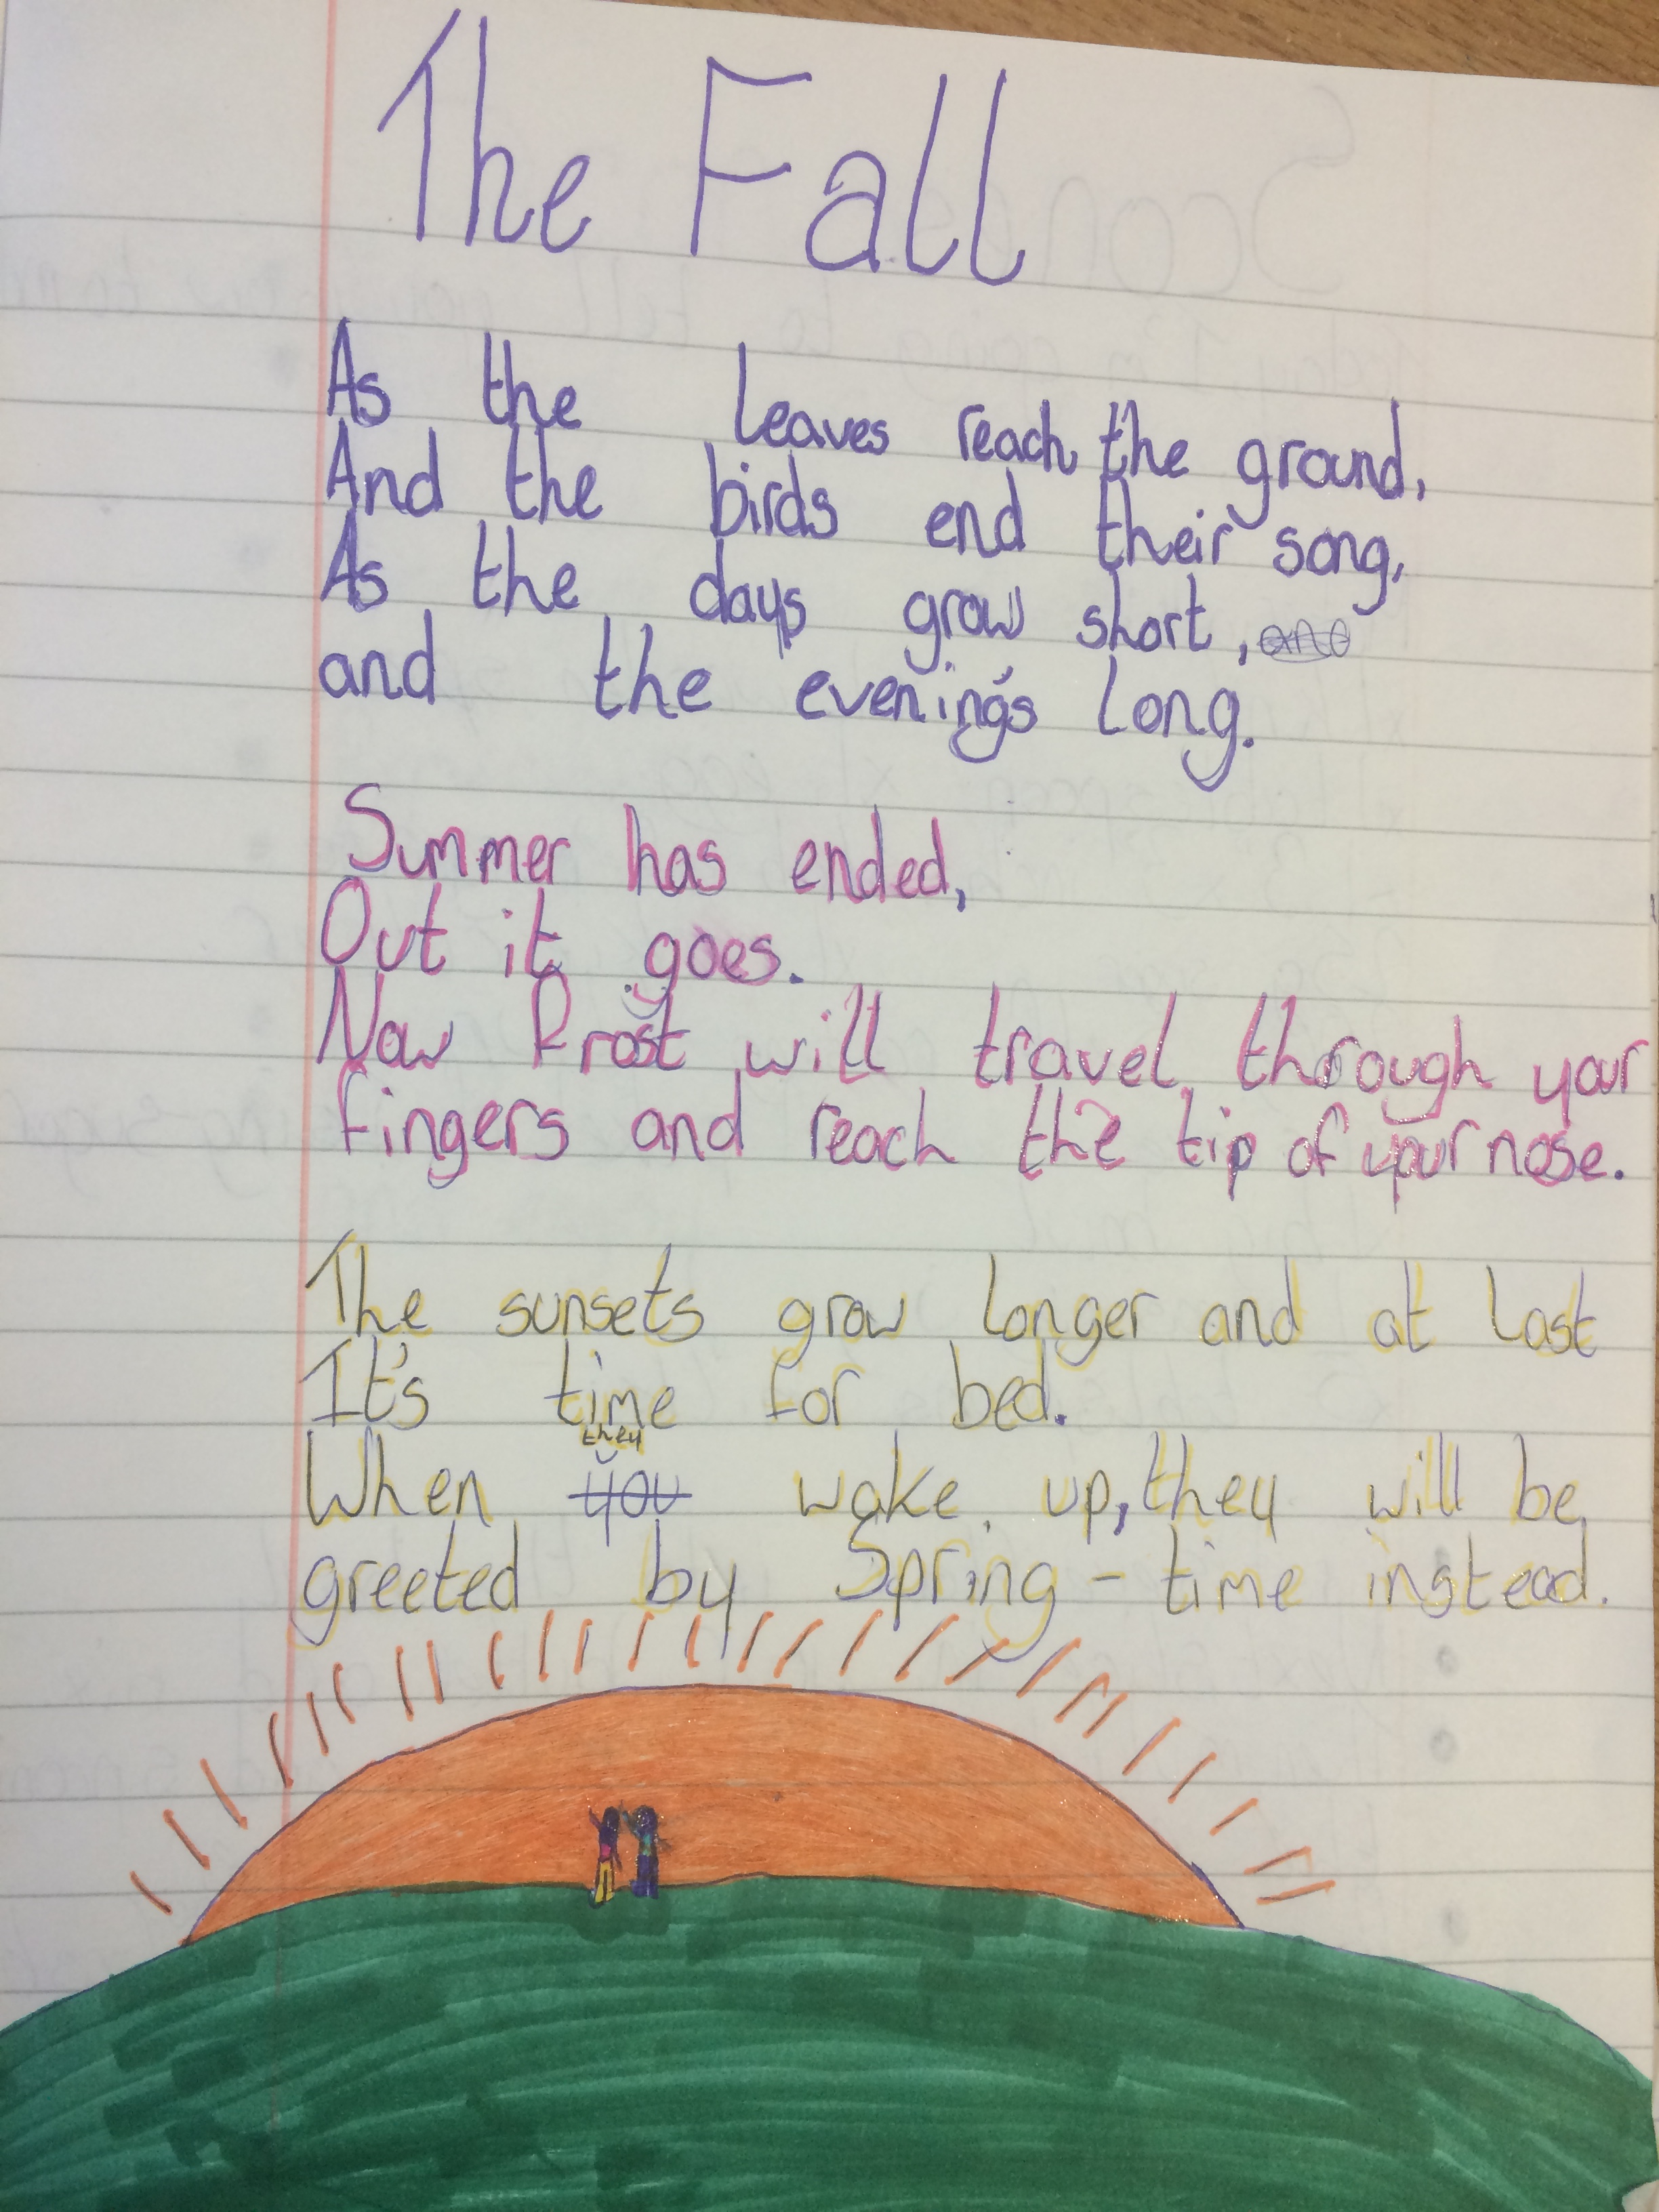 The Fall
As the leaves reach the ground,
And the birds end their song,
As the days grow short, and
and the evening's long.
Summer has ended,
Out it goes.
Now Frost will travel through your
fingers and reach the tip of your nose.
The sunsets grow longer and at last
It's time for bed.
they
When you wake up, they will be
greeted by Spring - time instead.